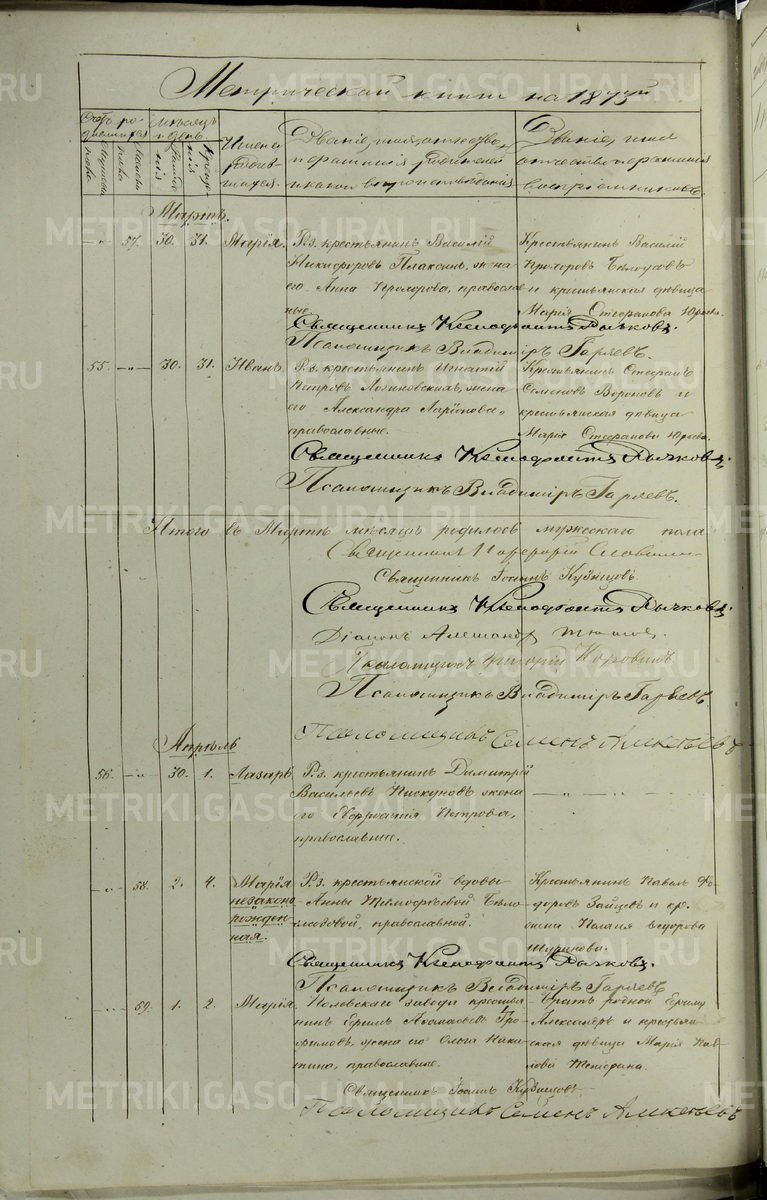 Метрической книги на 1875й
Счетъ родившихся
Мѣсяцъ и день
Имена родившихся.
Званіе, имя, отчество и фамилія родителей и какого вѣроисповѣданія
Званіе, имя отчество и фамилія воспріемниковъ.
Мужеска пола.
Женска пола
Рожденія
Крещенія
Мартъ.
57. 30. 31. Марія.
Р.з. крестьянинъ Василій
Никифоровъ Плаксинъ, жена
его Анна Прохорова, православ-
ные.
Крестьянинъ Василій
Прохоровъ Бѣлоусовъ
и крестьянская дѣвица
Марія Стефанова Юрьева.
Священникъ Ксенофонтъ Рычковъ.
Псаломщикъ Владиміръ Гаряевъ.
55. 30. 31. Иванъ.
Р.з. крестьянинъ Игнатій
Петровъ Лозиновскихъ, жена
его Александра Ларіонова,
православные.
Крестьянинъ Стефанъ
Семеновъ Вороновъ и
крестьянская дѣвица
Марія Стефанова Юрьева.
Священникъ Ксенофонтъ Рычковъ.
Псаломщикъ Владиміръ Гаряевъ.
Итого въ Мартѣ мѣсяцѣ родилось мужескаго пола
Священникъ Порфирій
Священникъ Іоаннъ Кузнецовъ.
Священникъ Ксенофонтъ Рычковъ.
Діаконъ Александръ
Псаломщикъ Григорій Коровинъ
Псаломщикъ Владиміръ Гаряевъ
Псаломщикъ Семенъ Аликѣевъ
Апрѣль
56. 30. 1. Лазарь.
Р.з. крестьянинъ Димитрій
Васильевъ Пискуновъ, жена
его Евфросинія Петрова,
православные.
58. 2. 4. Марія
незаконо-
рожден-
ная.
Р.з. крестьянской вдовы
Анны Тимофеевой Бѣло-
глазовой, православной.
Крестьянинъ Павелъ Фе-
доровъ Зайцевъ и кр.
Федорова
Священникъ Ксенофонтъ Рычковъ.
Псаломщикъ Владиміръ Гаряевъ
59. 1. 2. Марія.
Полевскаго завода крестья-
нинъ Ефимъ Аѳанасьевъ Тро-
фимовъ, жена его Ольга Ники-
тина, православные.
Братъ родной Ефиму
Александръ и крестьян-
ская дѣвица Марія Пав-
лова
Священникъ Іоаннъ Кузнецовъ
Псаломщикъ Семенъ Аликѣевъ
METRIKI.GASO-URAL.RU